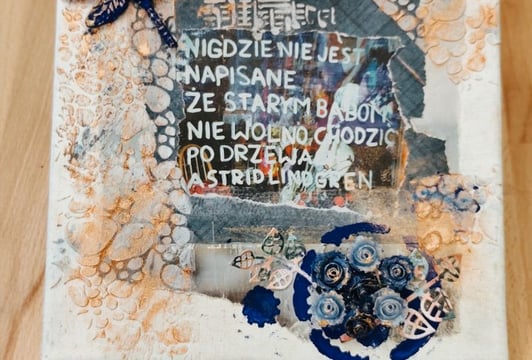 NIGDZIE NIE JEST
NAPISANE
ŻE STARYM BABOM
NIE WOLNO CHODZIĆ
PO DRZEWA
ASTRID LINDGREN